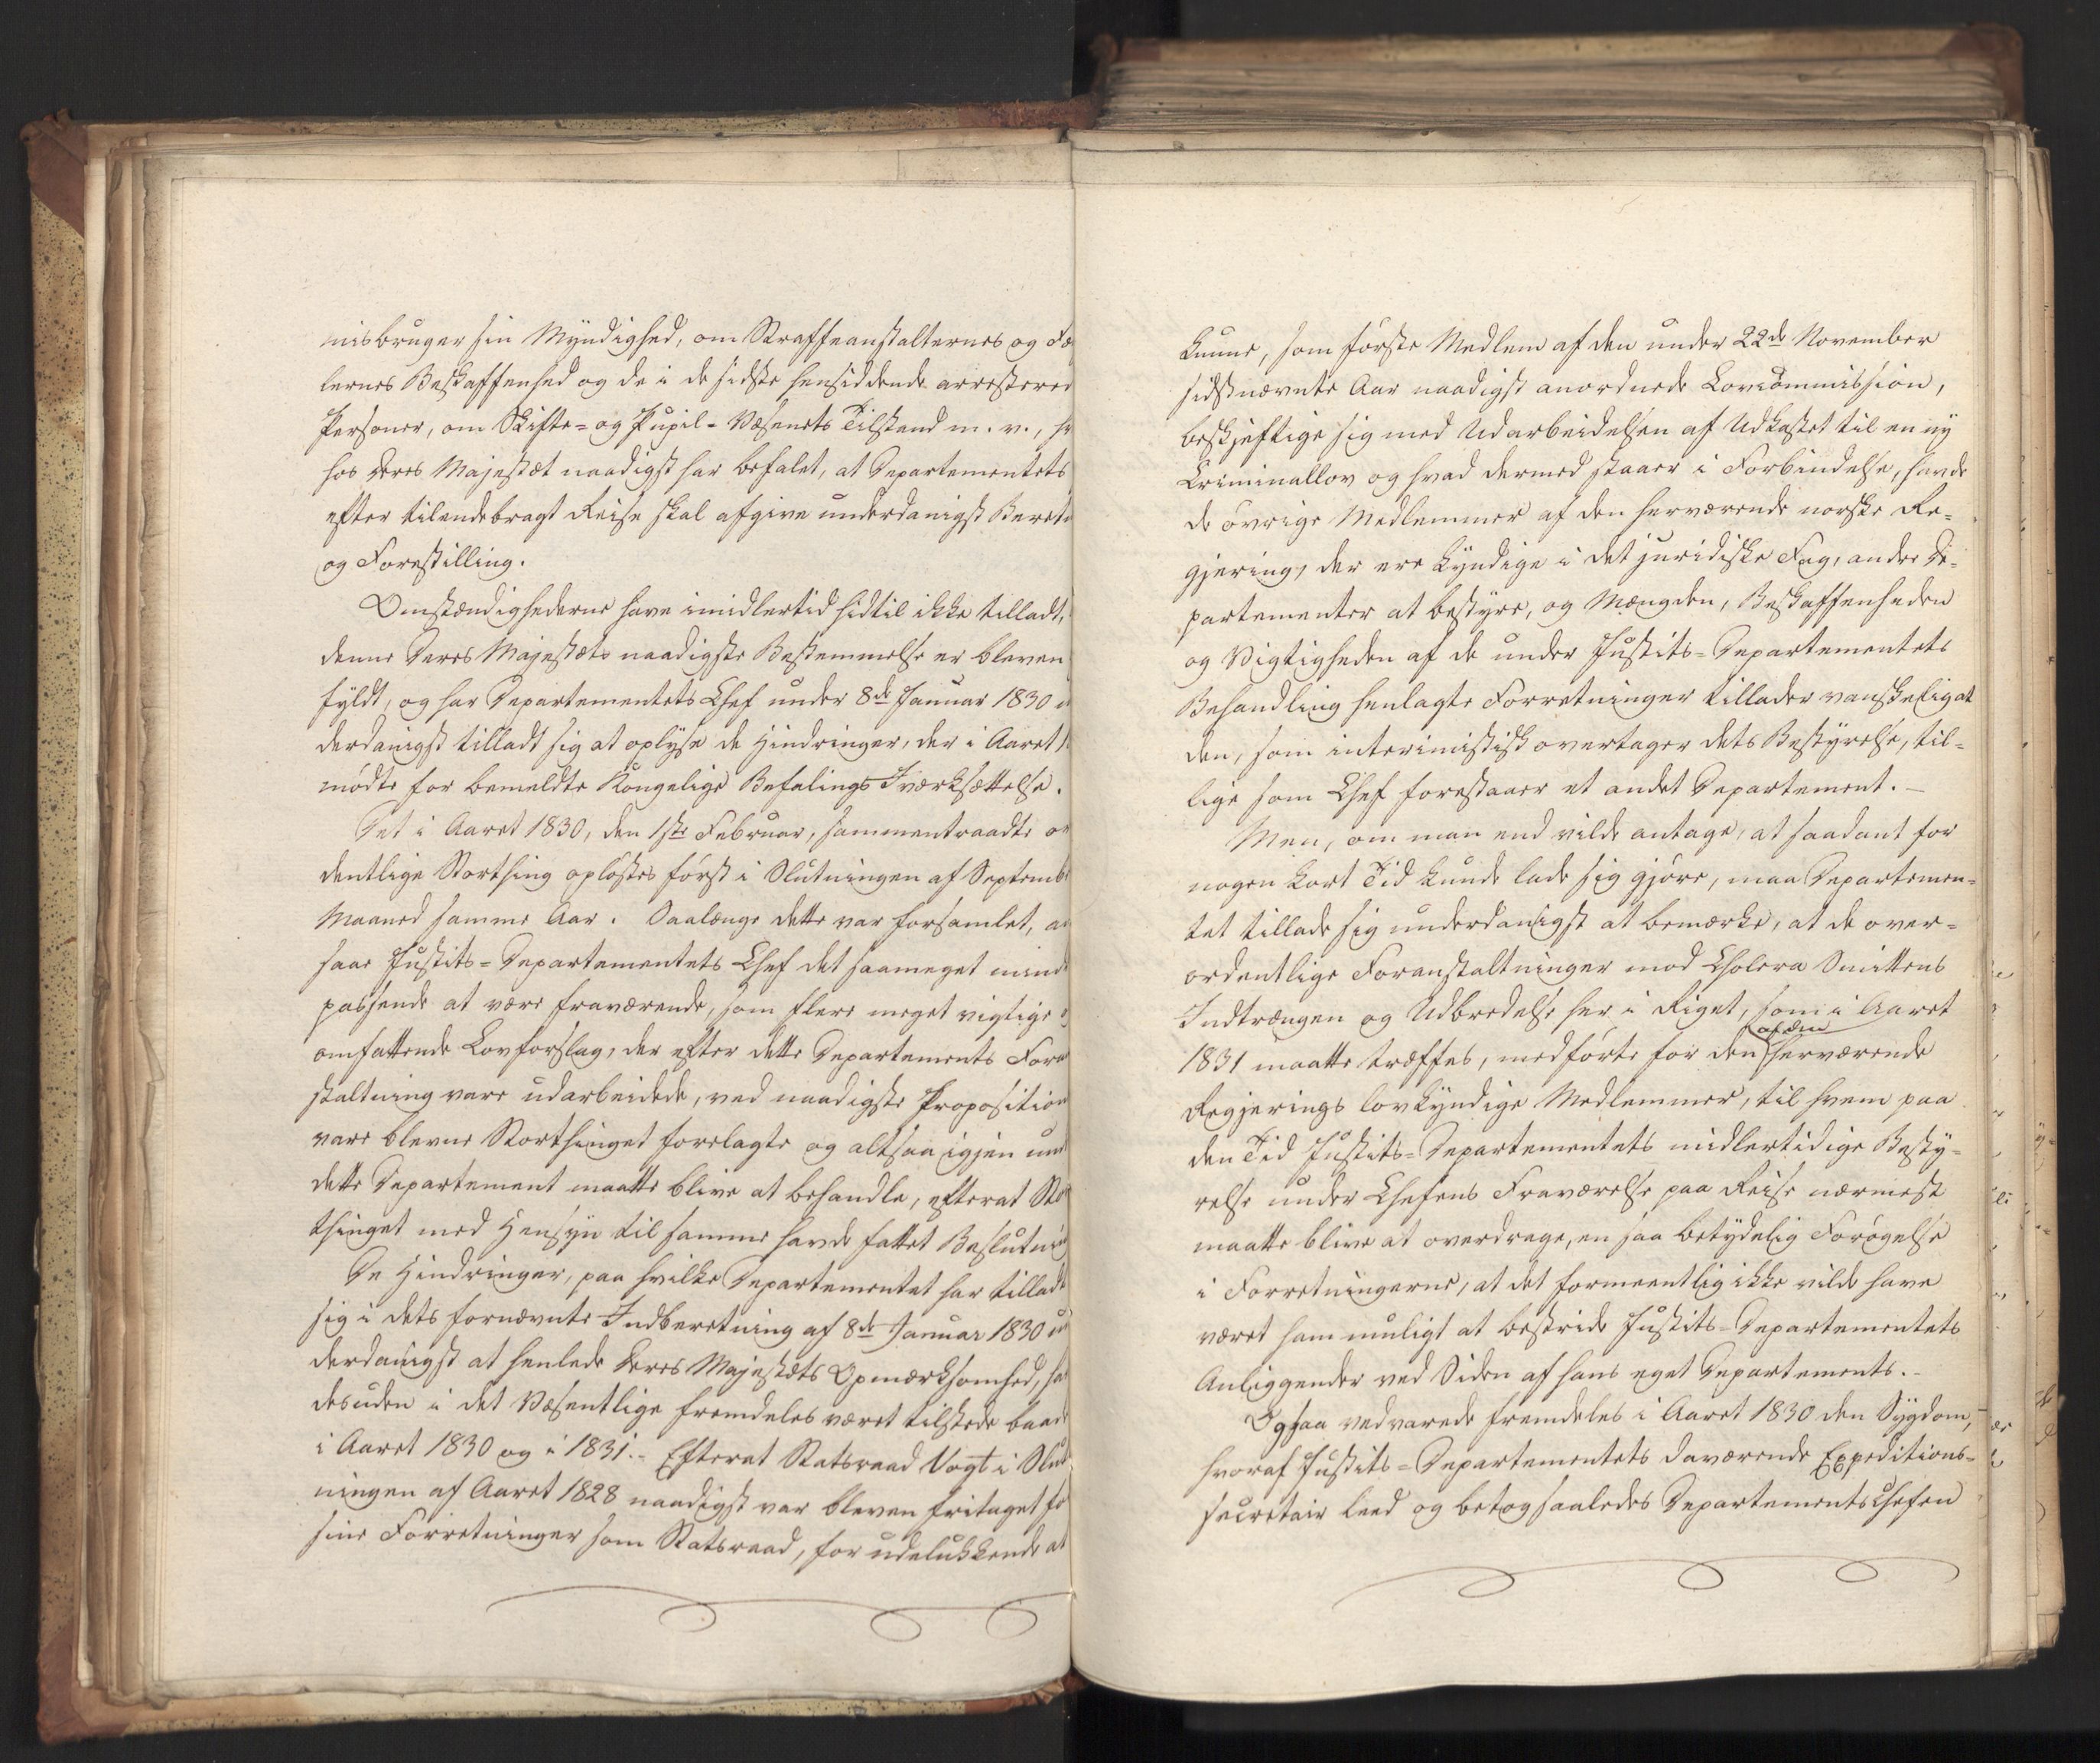 misbruger sin Myndighed, om Straffeanstalternes og Fæ
lernes Beskaffenhed og de i de sidste hensiddende arrestered
Personer, om Skifte- og Pupil-Væsenets Tilstand m. v.,
hos Deres Majestæt naadigst har befalet, at Departementets
efter tilendebragt Reise skal afgive underdanigst Beretn
og Forestilling.
Omstændighederne have imidlertid hidtil ikke tilladt,
denne Deres Majestæts naadigste Bestemmelse er bleven
fyldt, og har Departementets Chef under 8de Januar 1830
derdanigst tilladt sig at oplyse de Hindringer, der i Aaret
mödte for bemeldte Kongelige Befalings Iværksættelse.
Det i Aaret 1830, den 1ste Februar, sammentraadte or
dentlige Storthing oplöstes först i Slutningen af Septembe
Maaned samme Aar. Saalænge dette var forsamlet, an
saae Justits-Departementets Chef det saameget mind
passende at være fraværende, som flere meget vigtige
omfattende Lovforslag, der efter dette Departements Foran
staltning vare udarbeidede, ved naadigste Proposition
vare blevne Storthinget forelagte og altsaa igjen und
dette Departement maatte blive at behandle, efterat Stor
thinget med Hensyn til samme havde fattet Beslutnin
De Hindringer, paa hvilke Departementet har tilladt
sig i dets fornævnte Indberetning af 8de Januar 1830 un
derdanigst at henlede Deres Majestæts Opmærksomhed, ha
desuden i det Væsentlige fremdeles været tilstede baade
i Aaret 1830 og i 1831. - Efterat Statsraad Vogt i Slut
ningen af Aaret 1828 naadigst var bleven fritaget fo
sine Forretninger som Statsraad, for udelukkende at
kunne, som förste Medlem af den under 22de November
sidstnævnte Aar naadigst anordnede Lovcommission,
beskjeftige sig med Udarbeidelsen af Udkastet til en ny
Criminallov og hvad dermed staaer i Forbindelse, havde
de övrige Medlemmer af den herværende norske Re-
gjering, der ere kyndige i det juridiske Fag, andre De-
partementer at bestyre, og Mængden, Beskaffenheden
og Vigtigheden af de under Justits-Departementets
Behandling henlagte Forretninger tillader vanskelig at
den, som interimistisk overtager dets Bestyrelse, til-
lige som Chef forestaaer et andet Departement. -
Men, om man end vilde antage, at saadant for
nogen kort Tid kunde lade sig gjöre, maa Departemen-
tet tillade sig underdanigst at bemærke, at de over-
ordentlige Foranstaltninger mod Cholera Smittens
Indtrængen og Udbredelse her i Riget, som i Aaret
1831 maatte træffes, medförte for den af den herværende
Regjerings lovkyndige Medlemmer, til hvem paa
den Tid Justits-Departementets midlertidige Besty-
relse under Chefens Fraværelse paa Reise nærmest
maatte blive at overdrage, en saa betydelig Forögelse
i Forretningerne, at det formeentlig ikke vilde have
været ham muligt at bestride Justits-Departementets
Anliggender ved Siden af hans eget Departements. -
Ogsaa vedvarede fremdeles i Aaret 1830 den Sygdom,
hvoraf Justits-Departementets daværende Expeditions-
secretair leed og betog saaledes Departementschefen